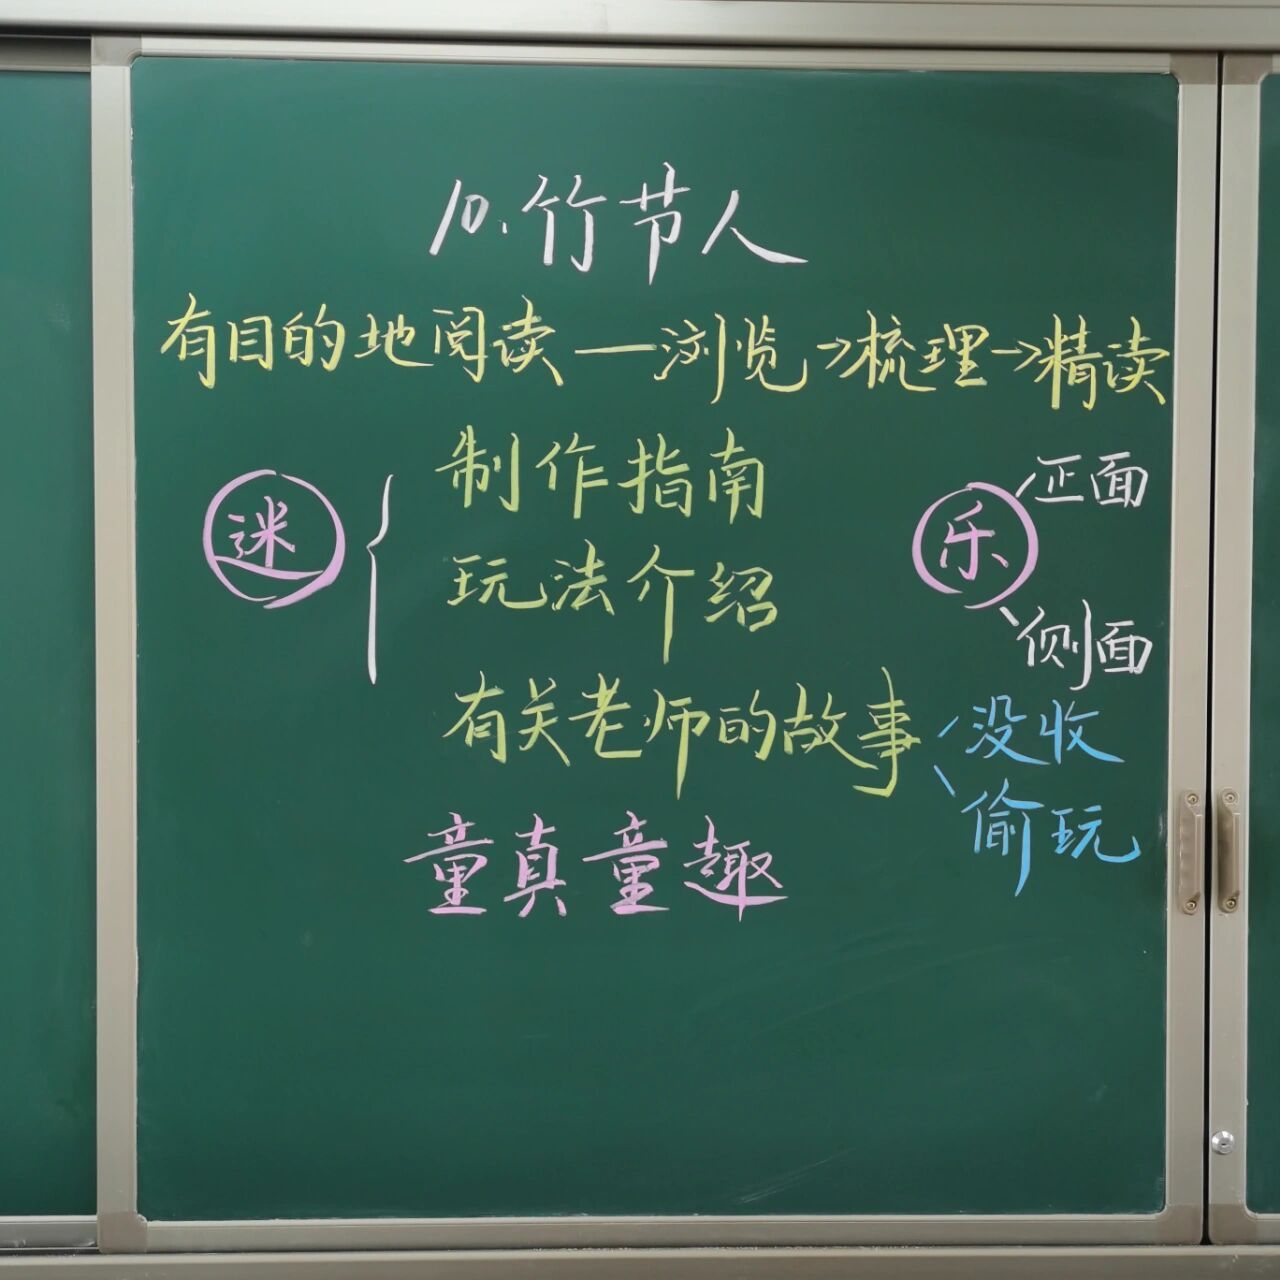 10.竹节人
有目的地阅读—浏览→梳理→精读
制作指南
正面
迷
乐
玩法介绍
侧面
有关老师的故事
没收
偷玩
童真童趣